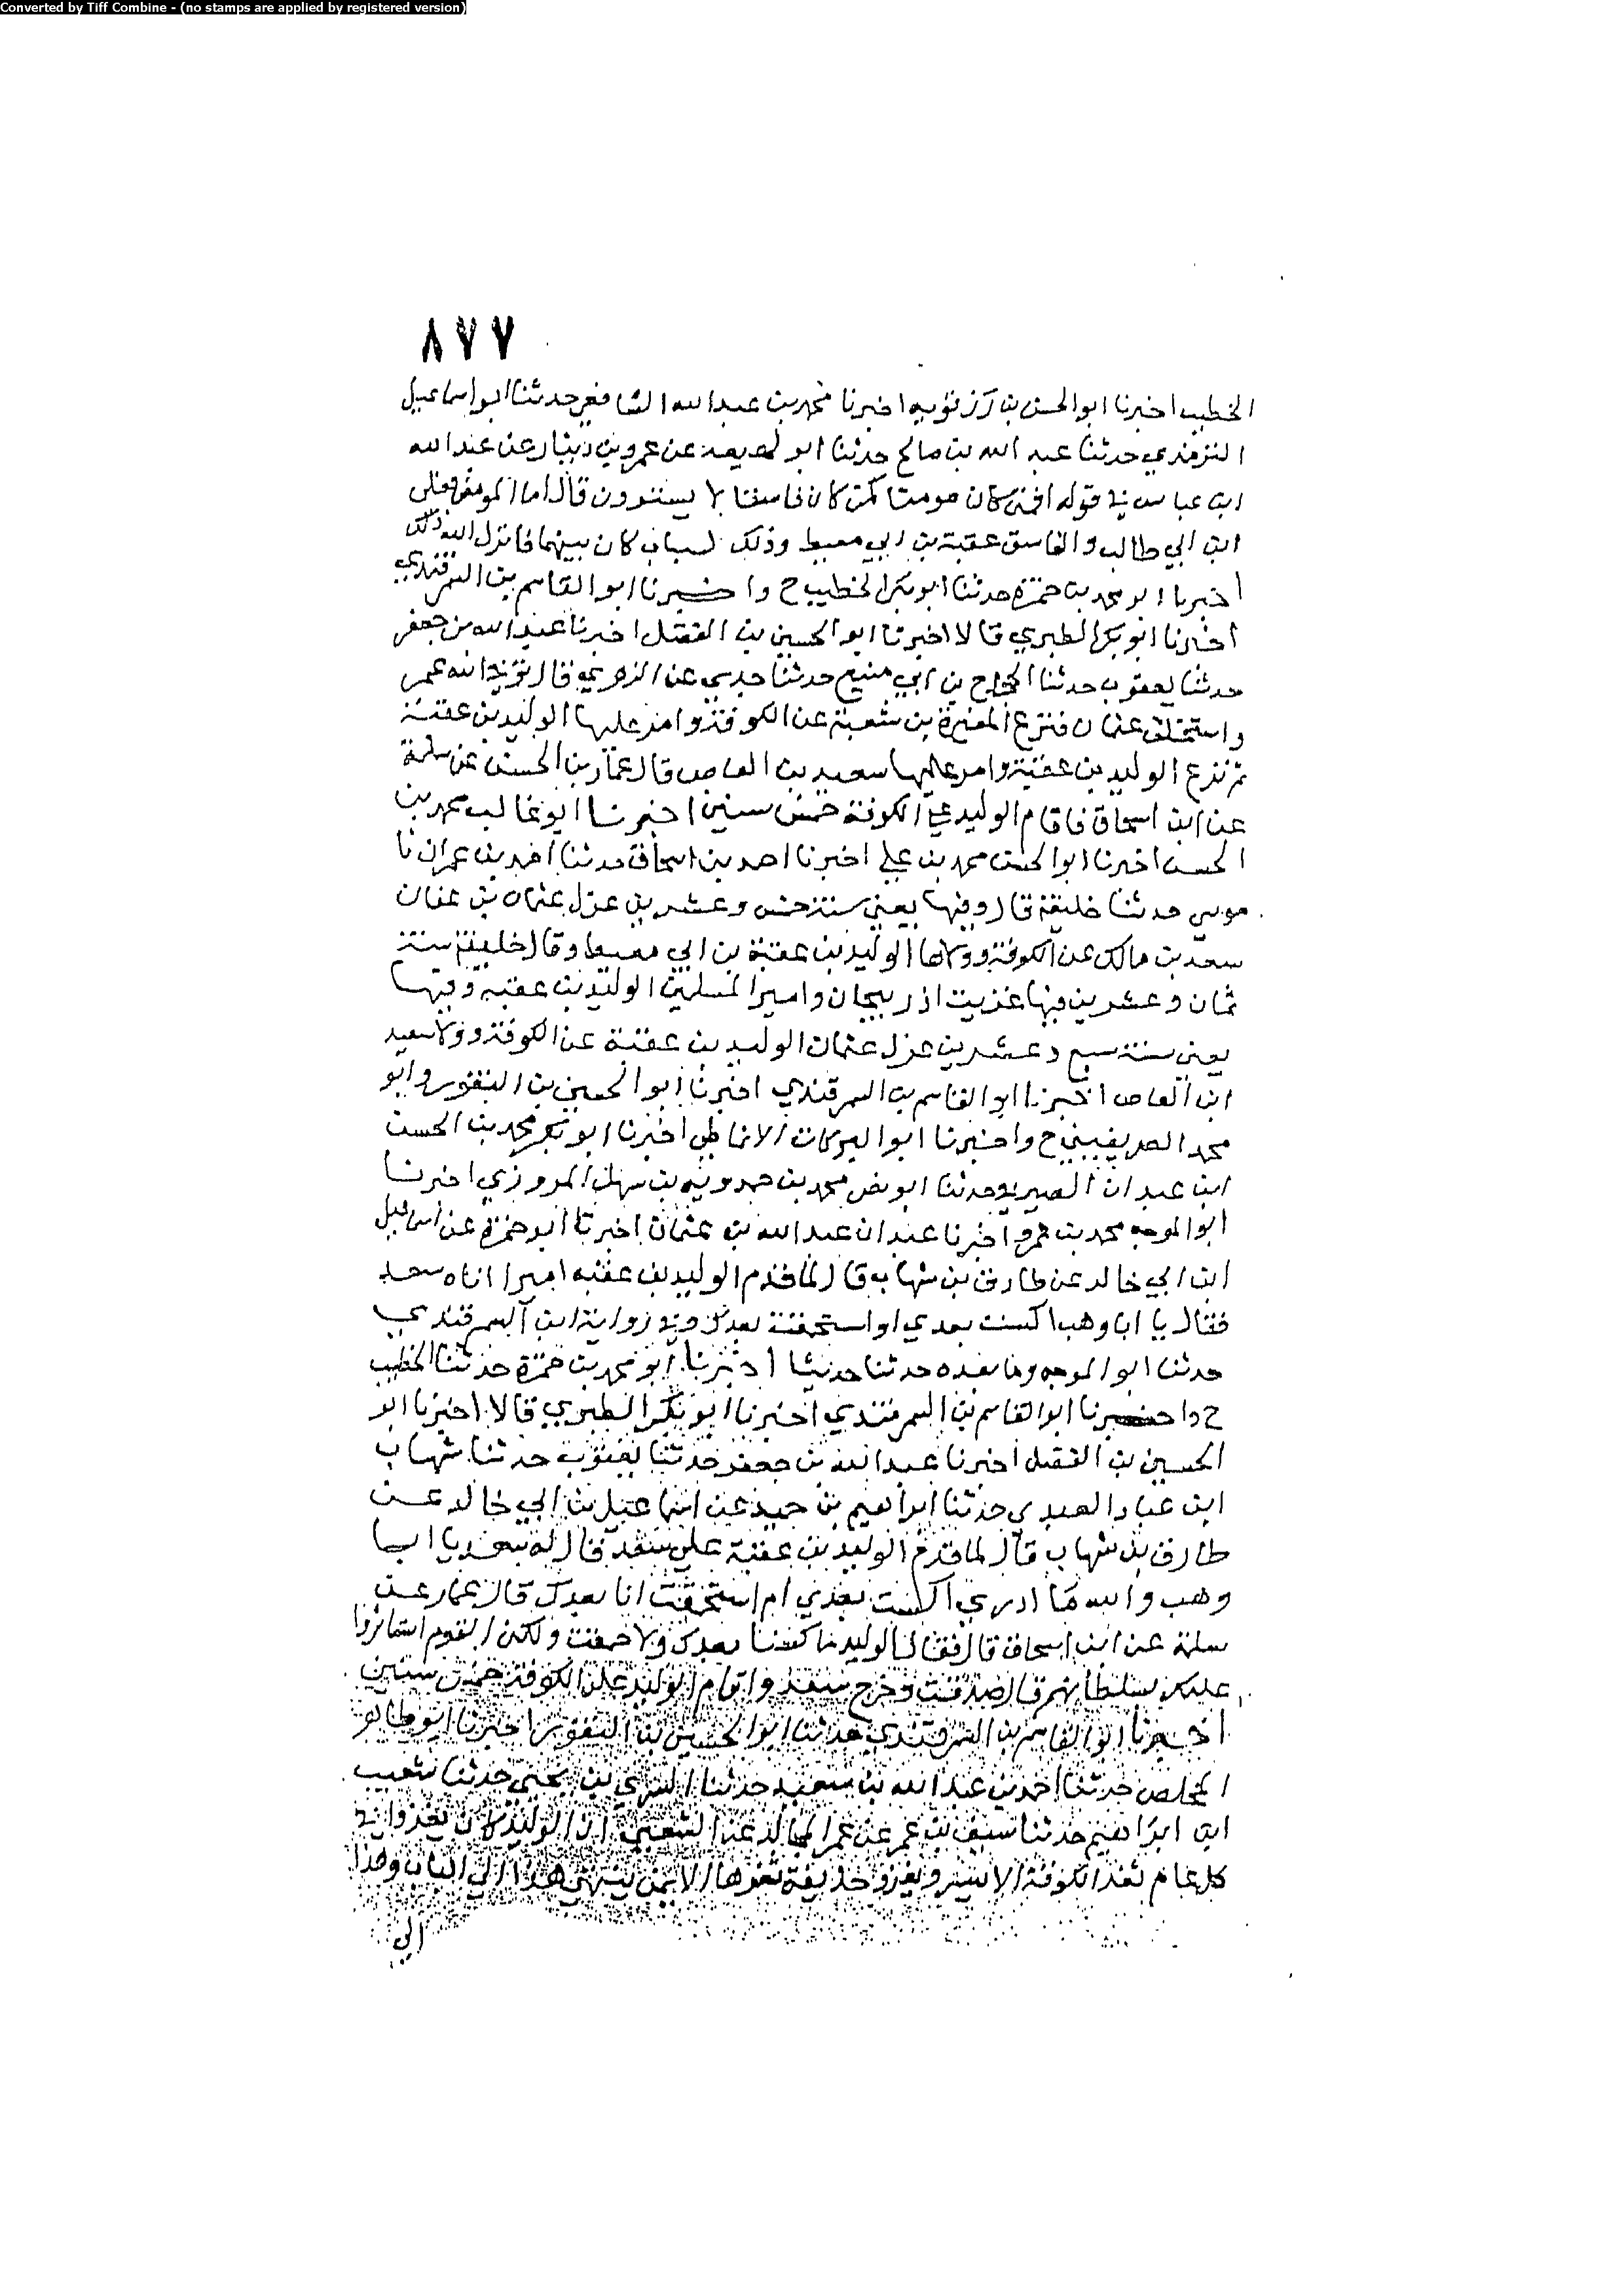 Converted by Tiff Combine - (no stamps are applied by registered version)
٨٧٧
الخطيب اخبرنا ابوالحسن بن رزنويه اخبرنا محمد بن عبدالله الشافعي حدثنا ابواسماعيل
الترمذي حدثنا عبد الله بن صالح حدثنا ابو لهيعة عن عمرو بن دينار عن عبدالله
ابن عباس في قوله افمن كان مومنا كمن كان فاسقا لا يستوون قال اما المومن فعلي
ابن ابي طالب والفاسق عقبة بن ابي معيط وذلك لسباب كان بينهما فانزل الله ذلك
اخبرنا ابو محمد بن حمزة حدثنا ابوبكر الخطيب ح واخبرنا ابوالقاسم بن السمرقندي
اخبرنا ابوبكر الطبري قالا اخبرنا ابوالحسين بن الفضل اخبرنا عبدالله بن جعفر
حدثنا يعقوب حدثنا الحجاج بن ابي منيع حدثنا جدي عن الزهري قال توفى الله عمر
واستخلف عثمان فنزع المغيرة بن شعبة عن الكوفة وامر عليها الوليد بن عقبة
ثم نزع الوليد بن عقبة وامر عليها سعيد بن العاص قال عمار بن الحسن عن سلمة
عن ابن اسحاق فاقام الوليد على الكوفة خمس سنين اخبرنا ابوغالب محمد بن
الحسن اخبرنا ابوالحسن محمد بن علي اخبرنا احمد بن اسحاق حدثنا احمد بن عمران نا
موسى حدثنا خليفة قال وفيها يعني سنة خمس وعشرين عزل عثمان بن عفان
سعد بن مالك عن الكوفة وولاها الوليد بن عقبة بن ابي معيط وقال خليفة سنة
ثمان وعشرين فيها غزيت اذربيجان وامير المسلمين الوليد بن عقبة وفيها
يعني سنة سبع وعشرين عزل عثمان الوليد بن عقبة عن الكوفة وولا سعيد
ابن العاص اخبرنا ابوالقاسم بن السمرقندي اخبرنا ابوالحسين بن النقور وابو
محمد الصريفيني ح واخبرنا ابوالبركات الانماطي اخبرنا ابوبكر محمد بن الحسن
ابن عبدان الصيرفي وحدثنا ابونصر محمد بن حمدويه بن سهل المروزي اخبرنا
ابوالموجه محمد بن عمرو اخبرنا عبدان عبدالله بن عثمان اخبرنا ابوحمزة عن اسماعيل
ابن ابي خالد عن طارق بن شهاب قال لما قدم الوليد بن عقبه اميرا اتاه سعد
فقال يا ابا وهب اكست بعدي او استحمقت بعدك وفي رواية ابن السمرقندي
حدثنا ابوالموجه وما بعده حدثنا حدثنا اخبرنا ابومحمد بن حمزة حدثنا الخطيب
ح واخبرنا ابوالقاسم بن السمرقندي اخبرنا ابوبكر الطبري قالا اخبرنا ابو
الحسين بن الفضل اخبرنا عبدالله بن جعفر حدثنا يعقوب حدثنا شهاب
ابن عباد العبدي حدثنا ابراهيم بن حميد عن اسماعيل بن ابي خالد عن
طارق بن شهاب قال لما قدم الوليد بن عقبة على سعد قال له سعد يا ابا
وهب والله ما ادري اكست بعدي ام استحمقت انا بعدك قال عمار عن
سلمة عن ابن اسحاق قال فقال الوليد ما كسنا بعدك ولا حمقت ولكن القوم استاثروا
عليك بسلطانهم قال صدقت وخرج سعد واقام الوليد على الكوفة خمس سنين
اخبرنا ابوالقاسم بن السمرقندي حدثنا ابوالحسين بن النقور اخبرنا ابوطاهر
المخلص حدثنا احمد بن عبدالله بن سعيد حدثنا السري بن يحيى حدثنا شعيب
ابن ابراهيم حدثنا سيف بن عمر عن المجالد عن الشعبي ان الوليد كان يغزوا في
كل عام ثغر الكوفة الايسر ويغزو حذيفة ثغرها الايمن ينتهي هذا الى الباب وهذا
الى